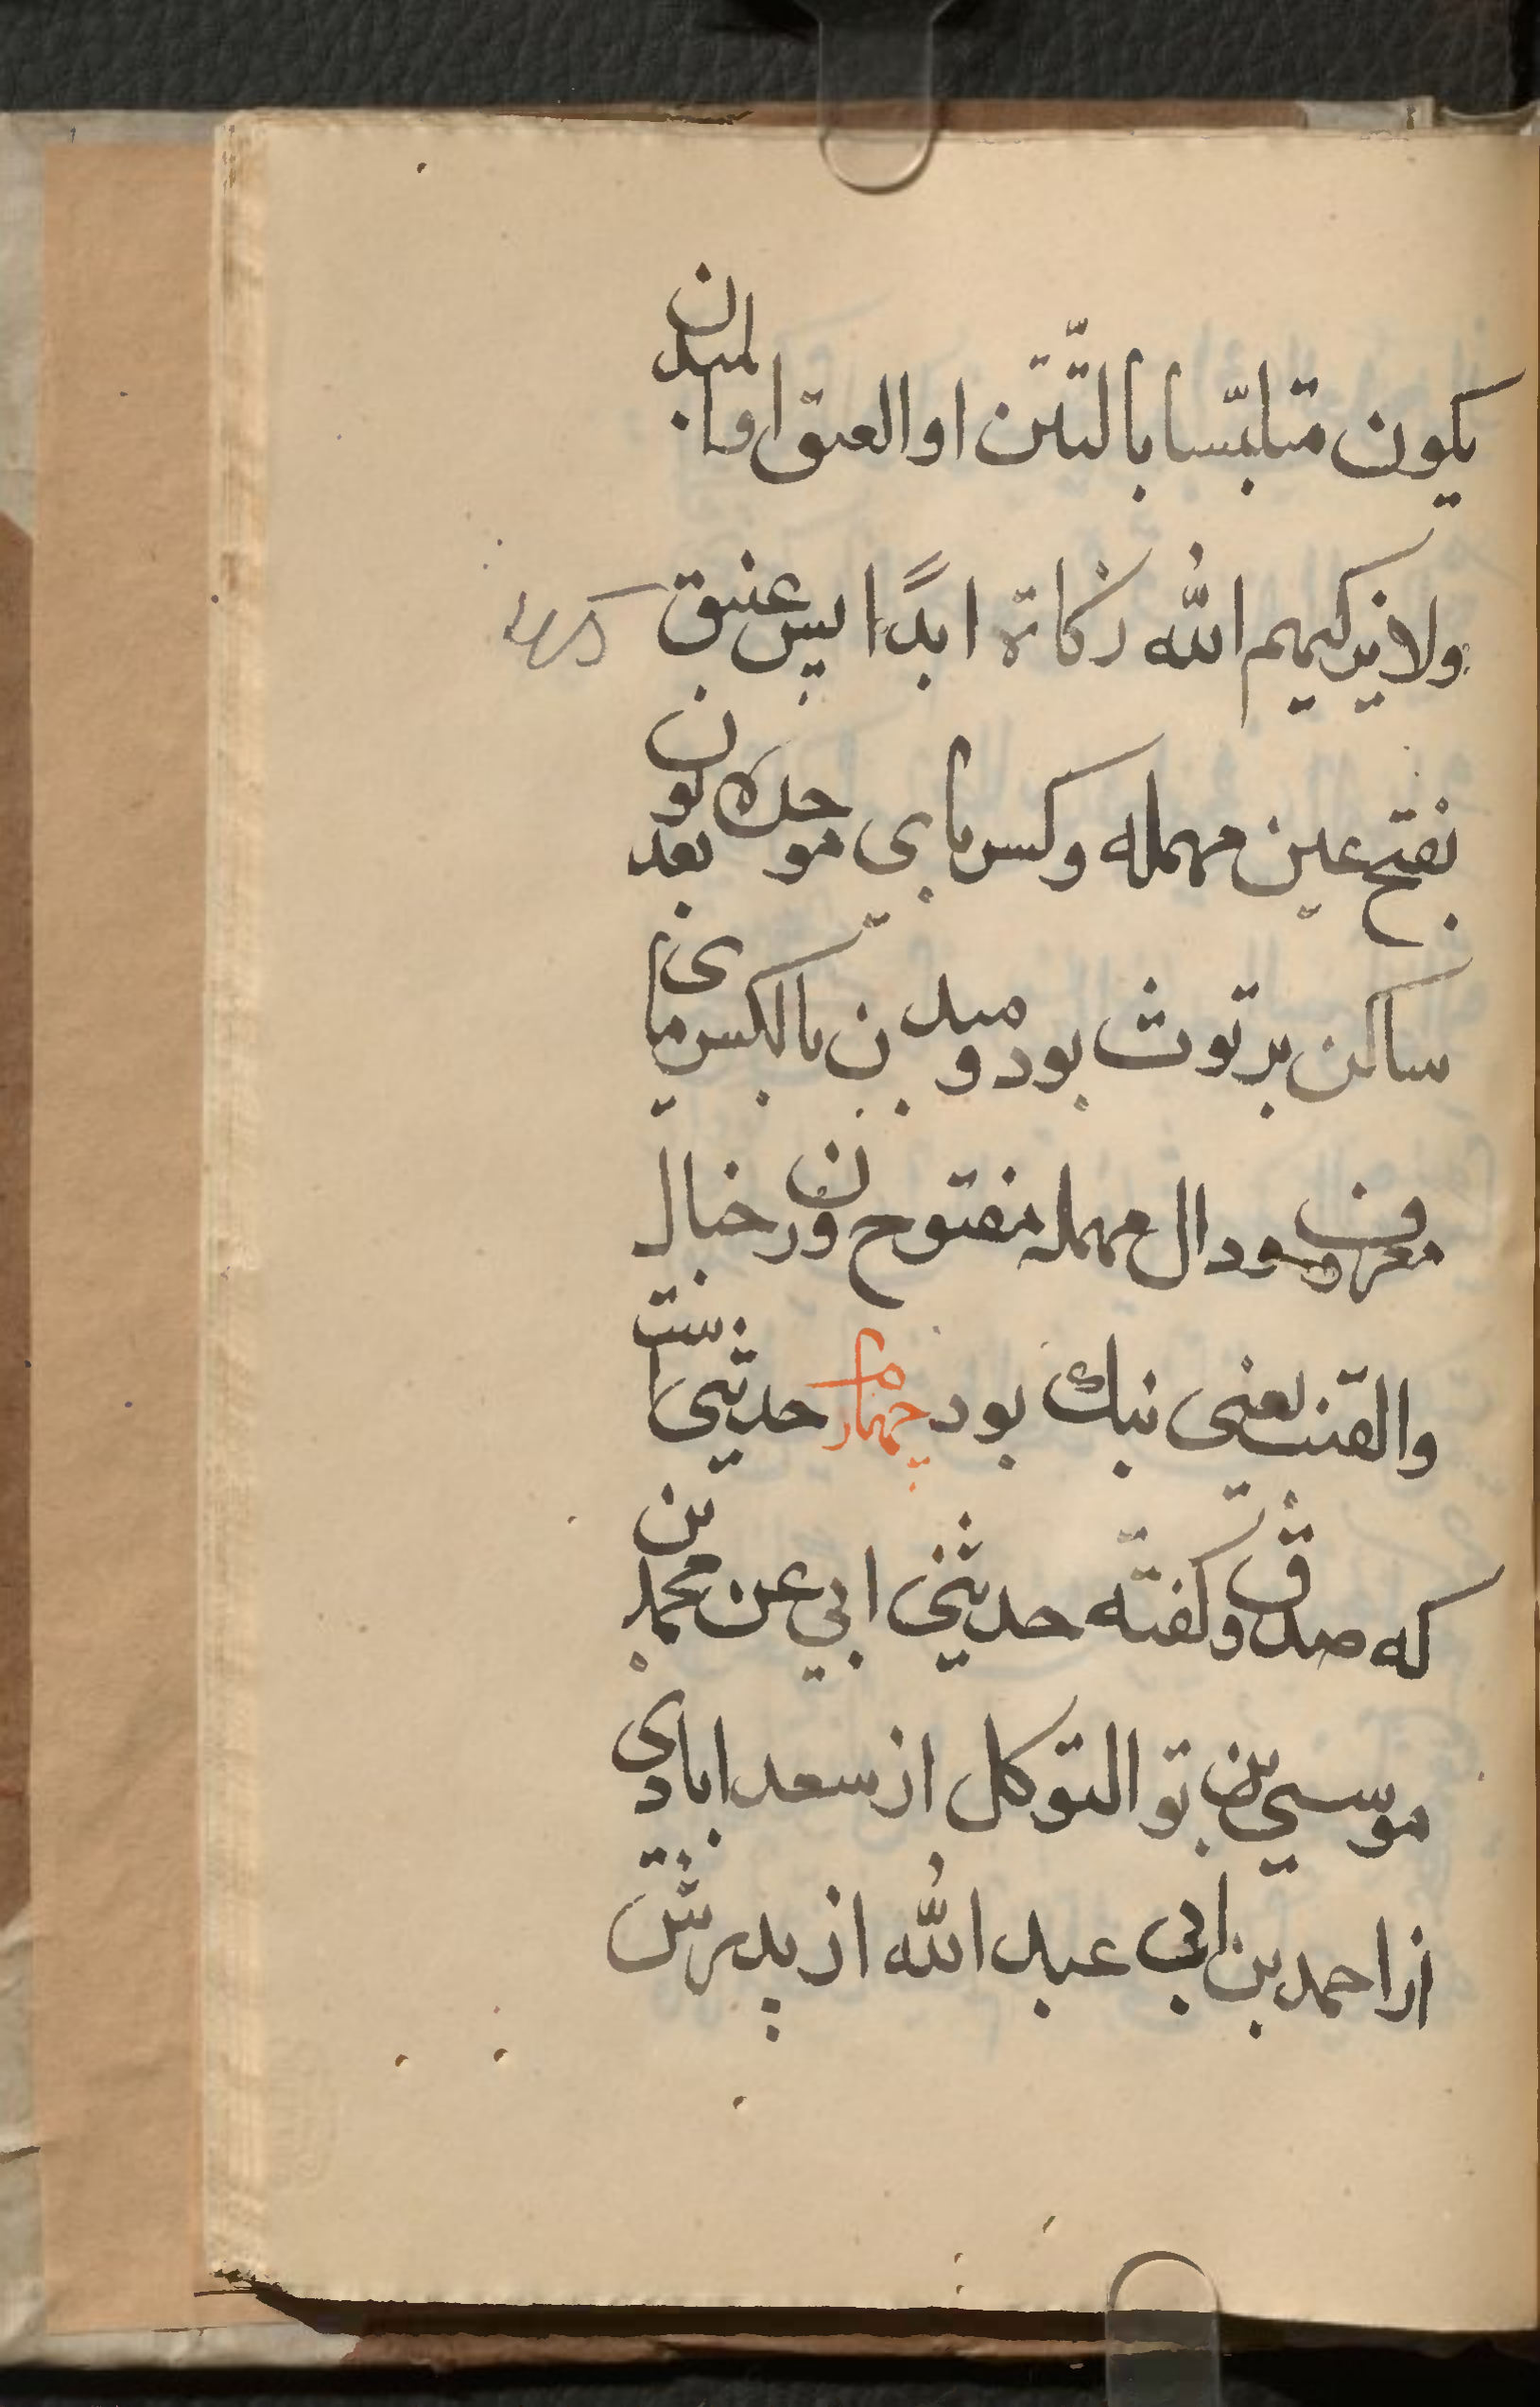 يكون متلبّسا بالتّتن او العبق او بالميدن
ولا يزكيهم الله زكاة ابدًا پس عنبق
بفتح عين مهمله وكسر باى موحده نون بعد
ساكن برتوث بود و ميدن بالكسر ياى
معروف ودال مهمله مفتوح ونون در خيال
والقنب يعنى نبك بود چهارم حديثى است
كه صدوق گفته حدثنى ابي عن محمد بن
موسي بن التوكل از سعدابادى
از احمد بن ابي عبد الله از پدرش